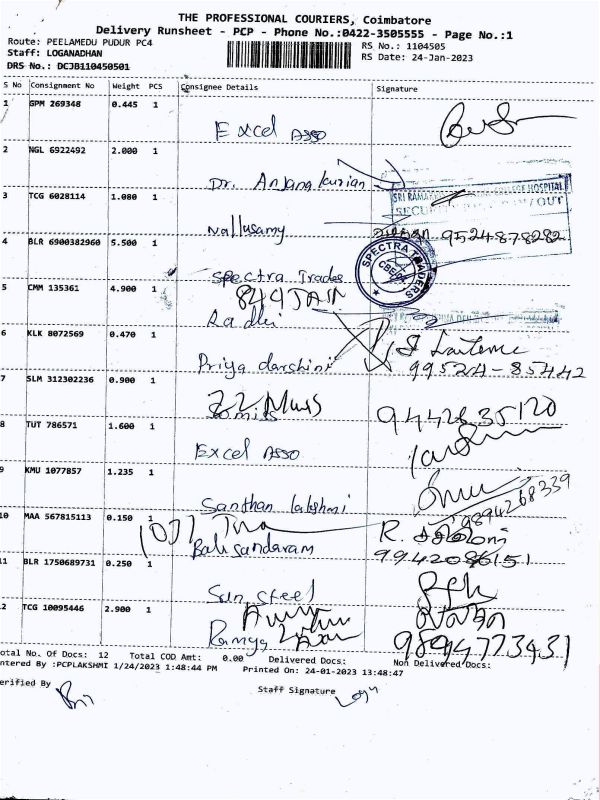 THE PROFESSIONAL COURIERS, Coimbatore
Delivery Runsheet - PCP - Phone No.:0422-3505555 - Page No.:1
Route: PEELAMEDU PUDUR PC4
RS No.: 1104505
Staff: LOGANADHAN
RS Date: 24-Jan-2023
DRS No.: DCJB110450501
S No Consignment No Weight PCS Consignee Details Signature
1 GPM 269348 0.445 1
Excel Asso
2 NGL 6922492 2.000 1
Dr. Anjana kurian
3 TCG 6028114 1.080 1
SRI COLLEGE HOSPITAL
/OUT
Nallusamy 9524878282
4 BLR 6900382960 5.500 1
SPECTRA TRADERS
CBE
Spectra Trades
5 CMM 135361 4.900 1
849 JAIN
Radhi
6 KLK 8072569 0.470 1
Priya darshini
99524-85442
7 SLM 312302236 0.900 1
9442635120
8 TUT 786571 1.600 1
Excel Asso
9 KMU 1077857 1.235 1
Santhan lakshmi
9894268339
10 MAA 567815113 0.150 1
R.
Balusandaram
9942086151
11 BLR 1750689731 0.250 1
Sun steel
12 TCG 10095446 2.900 1
Ramya
9894773431
Total No. Of Docs: 12 Total COD Amt: 0.00 Delivered Docs: Non Delivered Docs:
Entered By :PCPLAKSHMI 1/24/2023 1:48:44 PM Printed On: 24-01-2023 13:48:47
Verified By
Staff Signature